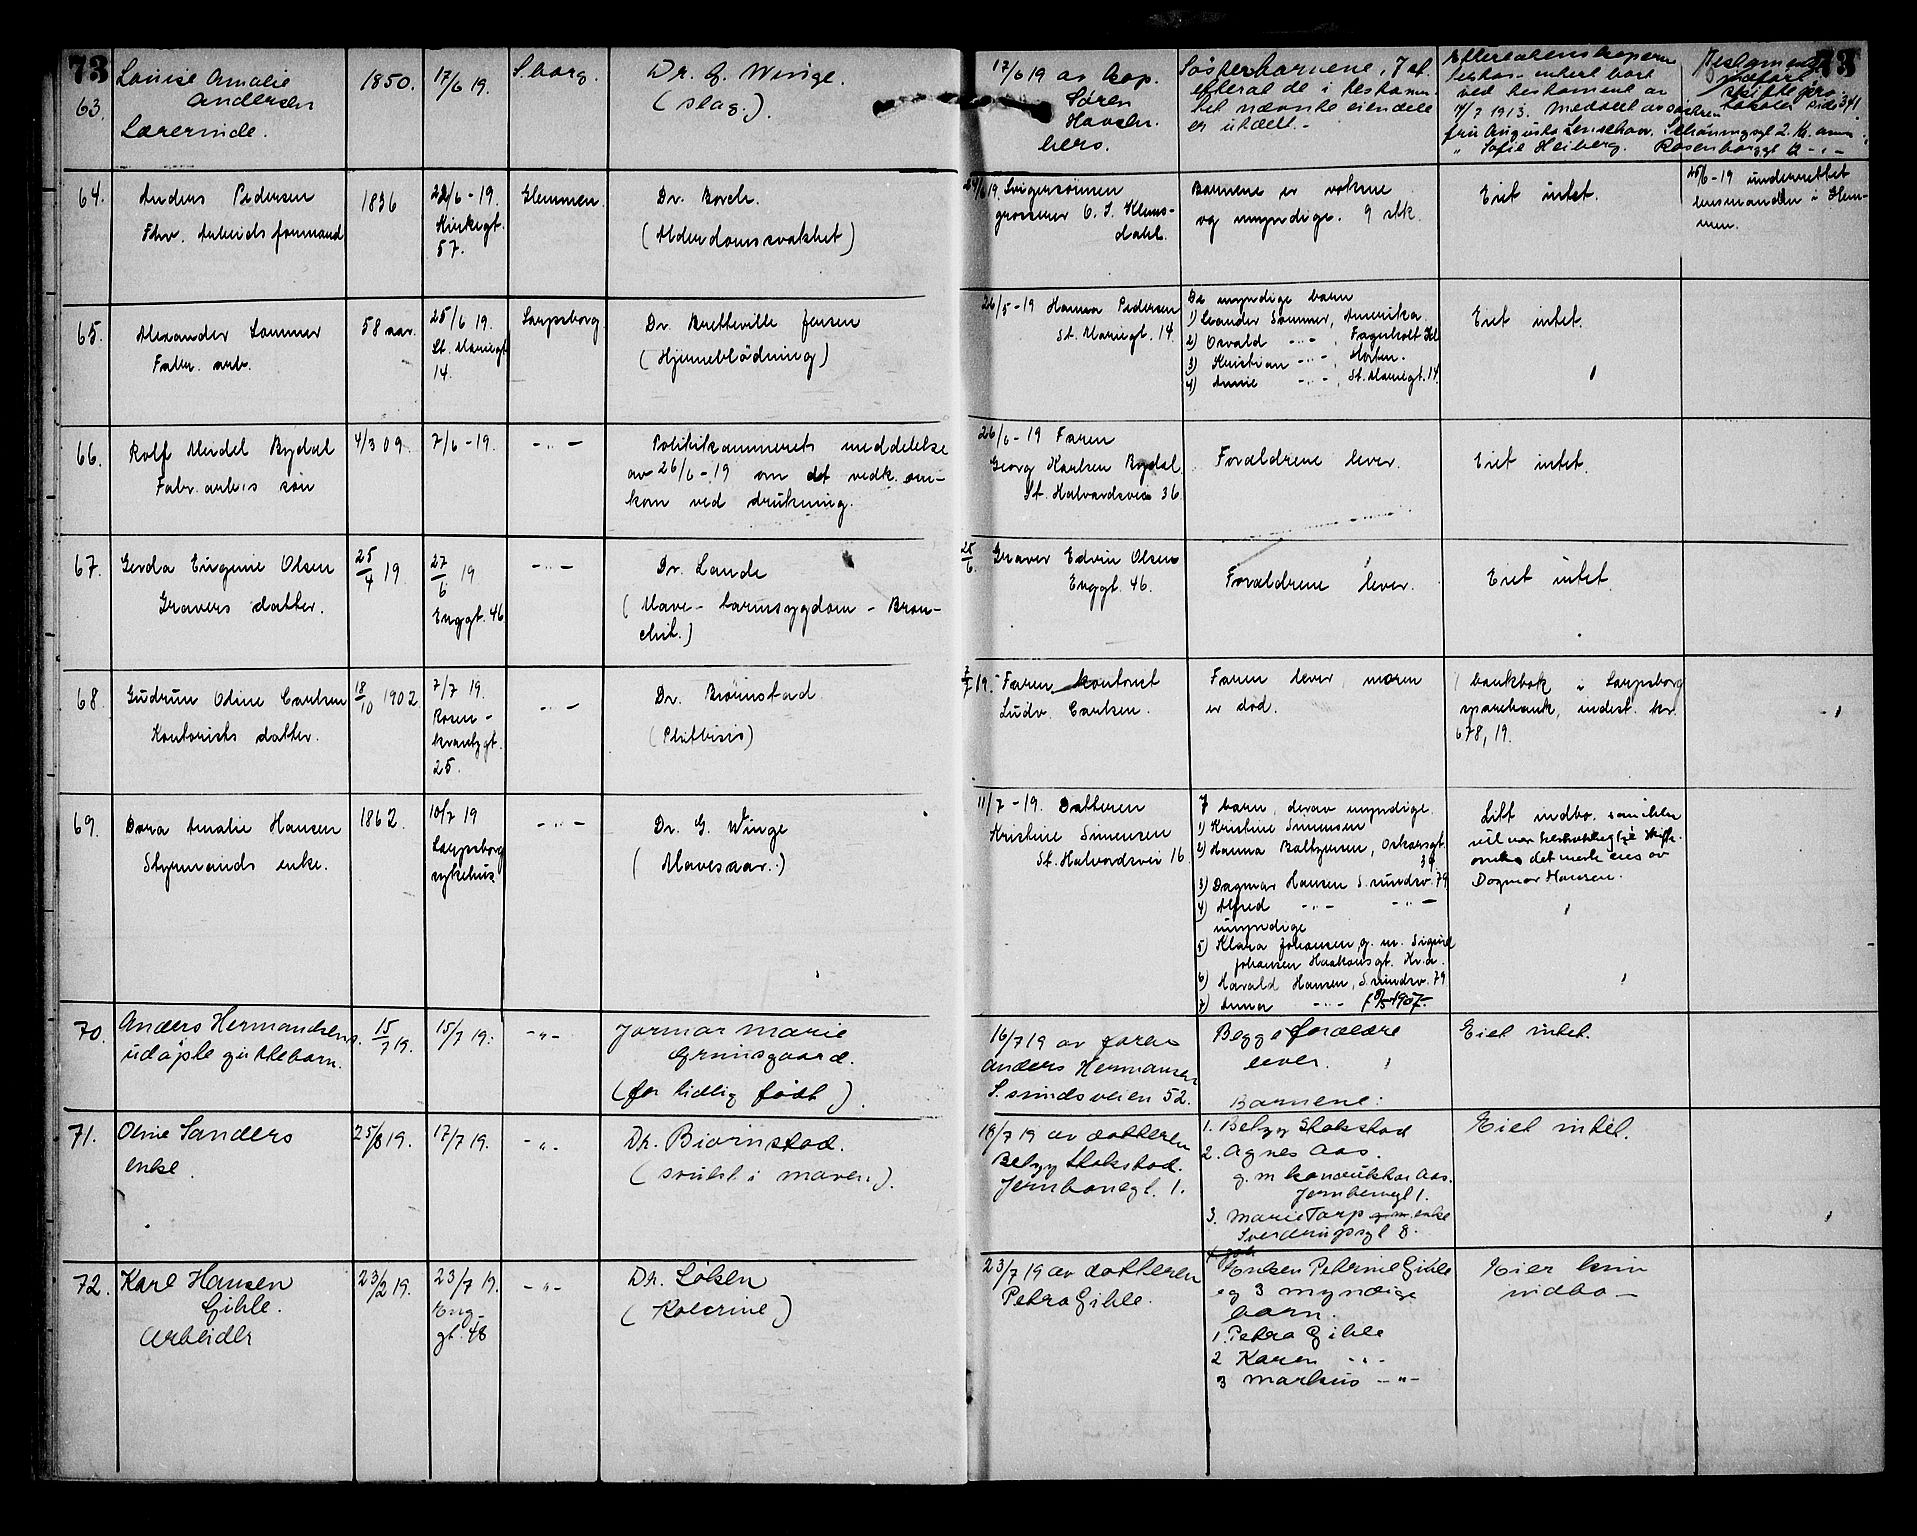 73
63.
Louise Amalie
Andersen
Lærerinde.
1850.
17/6 19.
S.borg.
Dr. G. Winge.
(slag.)
17/6 19 av kap.
Søren
hers.
Søsterbarnene, 7 st.
efterat de i testamen-
tet nævnte eiendele
er utdelt.-
ved testament av
17/7 1913. Meddelt avsøstren
fru Augusta
" Sofie Heiberg. Rosenborggt 2 -"-
73
64.
Anders Pedersen
Fhv. Arbeidsformand
1836
22/6 - 19.
Kirkegt.
57.
Glemmen.
Dr. Borch.
(Alderdomssvakhet)
24/6 19 Svigersønnen
grosserer C. J. Klems-
dahl.
Barnene er voksne
og myndige. 9 stk.
Eiet intet.
25/6-19 underrettet
lensmanden i Glem-
men.
65.
Alexander Sommer
Fabr. arb.
58 aar.
25/6 19.
St. Mariegt
14.
Sarpsborg
Dr. Bretteville Jensen
(Hjerneblödning)
26/5-19 Hanna Pedersen
St. Mariegt. 14
De myndige barn
1) Leander Sommer, Amerika.
2) Osvald -"- , Fagerholt
3) Kristian -"- , Horten.
4) Annie -"- , St. Mariegt. 14
Eiet intet.
66.
Rolf Meidel Bydal
Fabr. arb.s sön
4/3 09.
7/6 - 19.
-"-
Politikammerets meddelelse
av 26/6 - 19 om at vedk. om-
kom ved drukning.
26/6 - 19 Faren
Georg Karlsen Bydal
St. Halvardsvei 36
Forældrene lever.
Eiet intet.
67.
Gerda Eugenie Olsen
Gravers datter.
25/4 19
27/6 19
Enggt. 46
-"-
Dr. Lande
(Mave-tarmsygdom - Bron-
chit.)
25/6. Graver Edvin Olsen
Enggt. 46.
Forældrene lever.
Eiet intet.
68
Gudrun Odine Carlsen
Kontorists datter.
18/10 1902
7/7 19.
Rosen-
krantzgt.
25.
-"-
Dr. Biörnstad.
(Phithisis)
7/7 19. Faren kontorist
Ludv. Carlsen.
Faren lever, moren
er död.
1 bankbok i Sarpsborg
sparebank, indest. kr.
678, 19.
69.
Dora Amalie Hansen
Styrmands enke.
1862.
10/7 19
Sarpsborg
sykehus
-"-
Dr. G. Winge
(Mavesaar.)
11/7 - 19. Datteren
Kristine Simensen
St. Halvardsvei 16
7 barn, derav myndige
1) Kristine Simensen
2) Hanna Baltzersen, Oskarsgt.
39
3) Dagmar Hansen S.sundsv. 79
4) Alfred -"- -"-
umyndige
5) Klara Johansen, g. m. Sigurd
Johansen Haakonsgt. Kr.a.
6) Harald Hansen, S.sundsv. 79
7) Anna -"-
Litt indbo.
Dagmar Hansen.
70.
Anders Hermandsens
udøpte guttebarn.
15/7 19.
15/7 19.
-"-
Jormor Marie
Grimsgaard.
(for tidlig født)
16/7 19 av faren
Anders Hermansen
S.sundsveien 52.
Begge forældre
lever.
Eiet intet.
71.
Oline Sanders
enke
25/8 19.
17/7 19.
-"-
Dr. Biørnstad.
(svulst i maven).
18/7 19 av datteren
Betzy Stokstad.
Jernbanegt. 1.
Barnene:
1. Betzy Stokstad
2. Agnes Aas.
g. m konduktør Aas.
Jernbanegt 1.
3. Marie Tarp g.m. enke
Sverdrupsgt 8.
Eiet intet.
72.
Karl Hansen
Gihle.
Arbeider
23/2 19.
23/7 19.
Eng-
gt. 48
-"-
Dr. Løken
(Kolerine)
23/7 19 av datteren
Petra Gihle.
Enken Petrine Gihle
og 3 myndige
barn.
1. Petra Gihle
2 Karen -"-
3 Markus -"-
Eier kun
indbo-